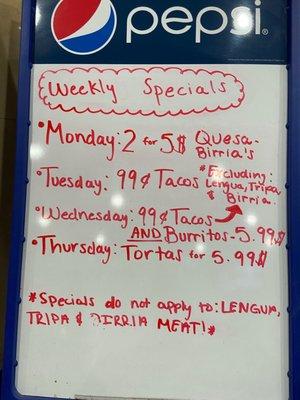 pepsi
Weekly Specials
• Monday: 2 for 5$ Quesa-
Birria's
• Tuesday: 99¢ Tacos *Excluding:
Lengua, Tripa
& Birria.
• Wednesday: 99¢ Tacos
AND Burritos - 5.99$
• Thursday: Tortas for 5.99$
*Specials do not apply to: LENGUA,
TRIPA & BIRRIA MEAT!*